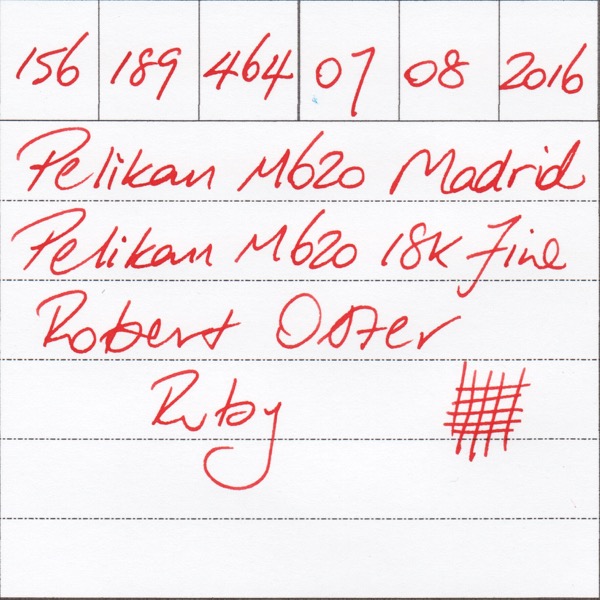 156 189 464 07 08 2016
Pelikan M620 Madrid
Pelikan M620 18K Fine
Robert Oster
Ruby